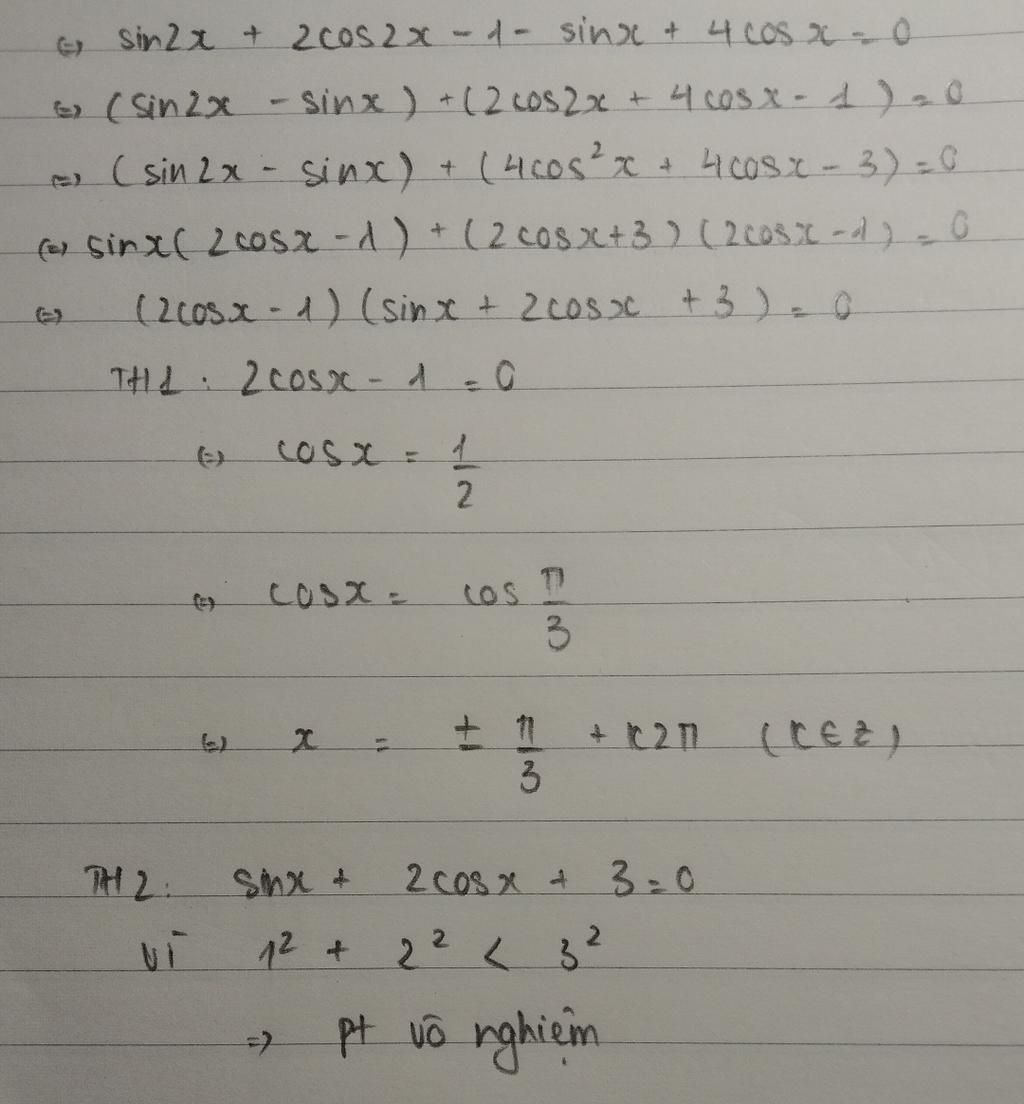 ⇔ sin2x + 2cos2x - 1 - sinx + 4cosx = 0
⇔ (sin2x - sinx) + (2cos2x + 4cosx - 1) = 0
⇔ (sin2x - sinx) + (4cos²x + 4cosx - 3) = 0
⇔ sinx(2cosx - 1) + (2cosx+3)(2cosx - 1) = 0
⇔ (2cosx - 1)(sinx + 2cosx + 3) = 0
TH1: 2cosx - 1 = 0
⇔ cosx = 1/2
⇔ cosx = cos π/3
⇔ x = ± π/3 + k2π (k∈Z)
TH2: sinx + 2cosx + 3 = 0
Vì 1² + 2² < 3²
=> pt vô nghiệm